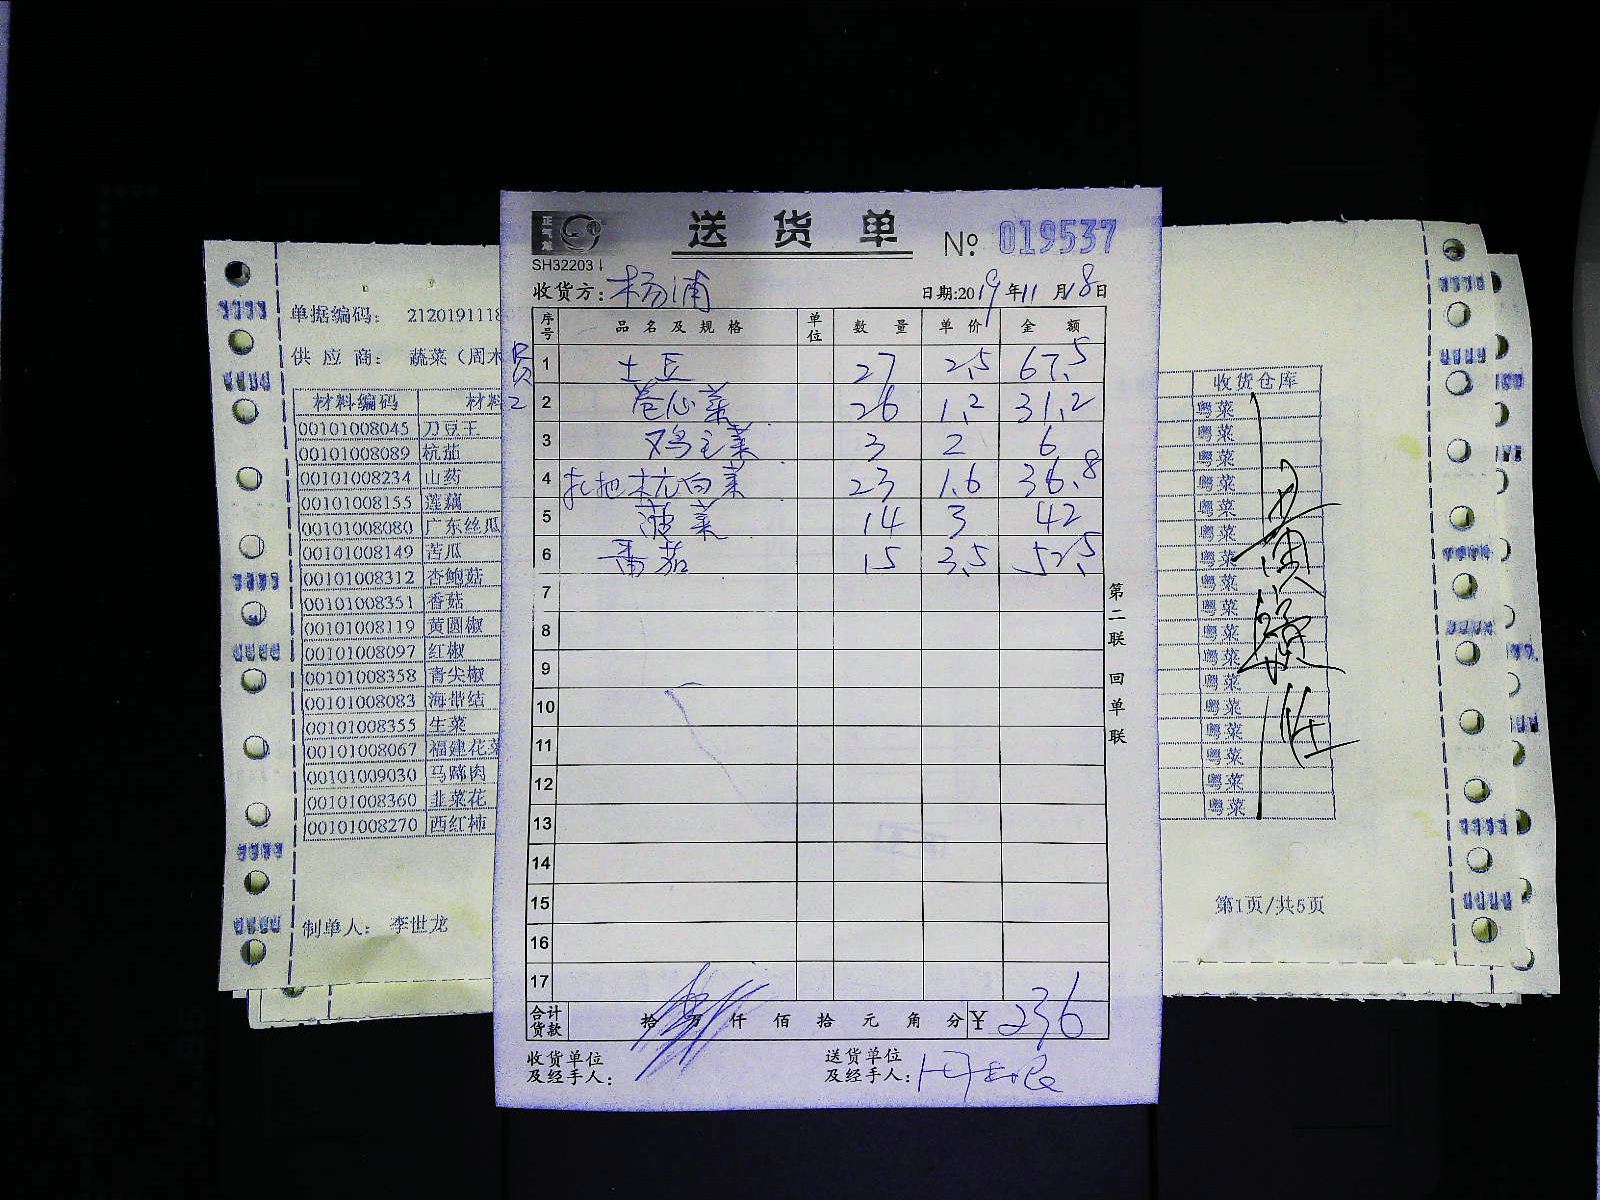 正气龙
送货单 № 019537
SH32203
收货方: 杨浦 日期:2019年11月18日
序号 品名及规格 单位 数量 单价 金额
1 土豆 27 2.5 67.5
2 卷心菜 26 1.2 31.2
3 鸡毛菜 3 2 6
4 杭白菜 23 1.6 36.8
5 菠菜 14 3 42
6 番茄 15 3.5 52.5
7
8
9
10
11
12
13
14
15
16
17
合计货款 拾万仟佰拾元角分 ¥ 236
收货单位及经手人:
送货单位及经手人:
第二联 回单联
单据编码: 2120191118
供应商: 蔬菜(周末
材料编码 材料
00101008045 刀豆王
00101008089 杭茄
00101008234 山药
00101008155 莲藕
00101008080 广东丝瓜
00101008149 苦瓜
00101008312 杏鲍菇
00101008351 香菇
00101008119 黄圆椒
00101008097 红椒
00101008358 青尖椒
00101008083 海带结
00101008355 生菜
00101008067 福建花菜
00101009030 马蹄肉
00101008360 韭菜花
00101008270 西红柿
制单人: 李世龙
收货仓库
粤菜
粤菜
粤菜
粤菜
粤菜
粤菜
粤菜
粤菜
粤菜
粤菜
粤菜
粤菜
粤菜
粤菜
粤菜
粤菜
粤菜
第1页/共5页